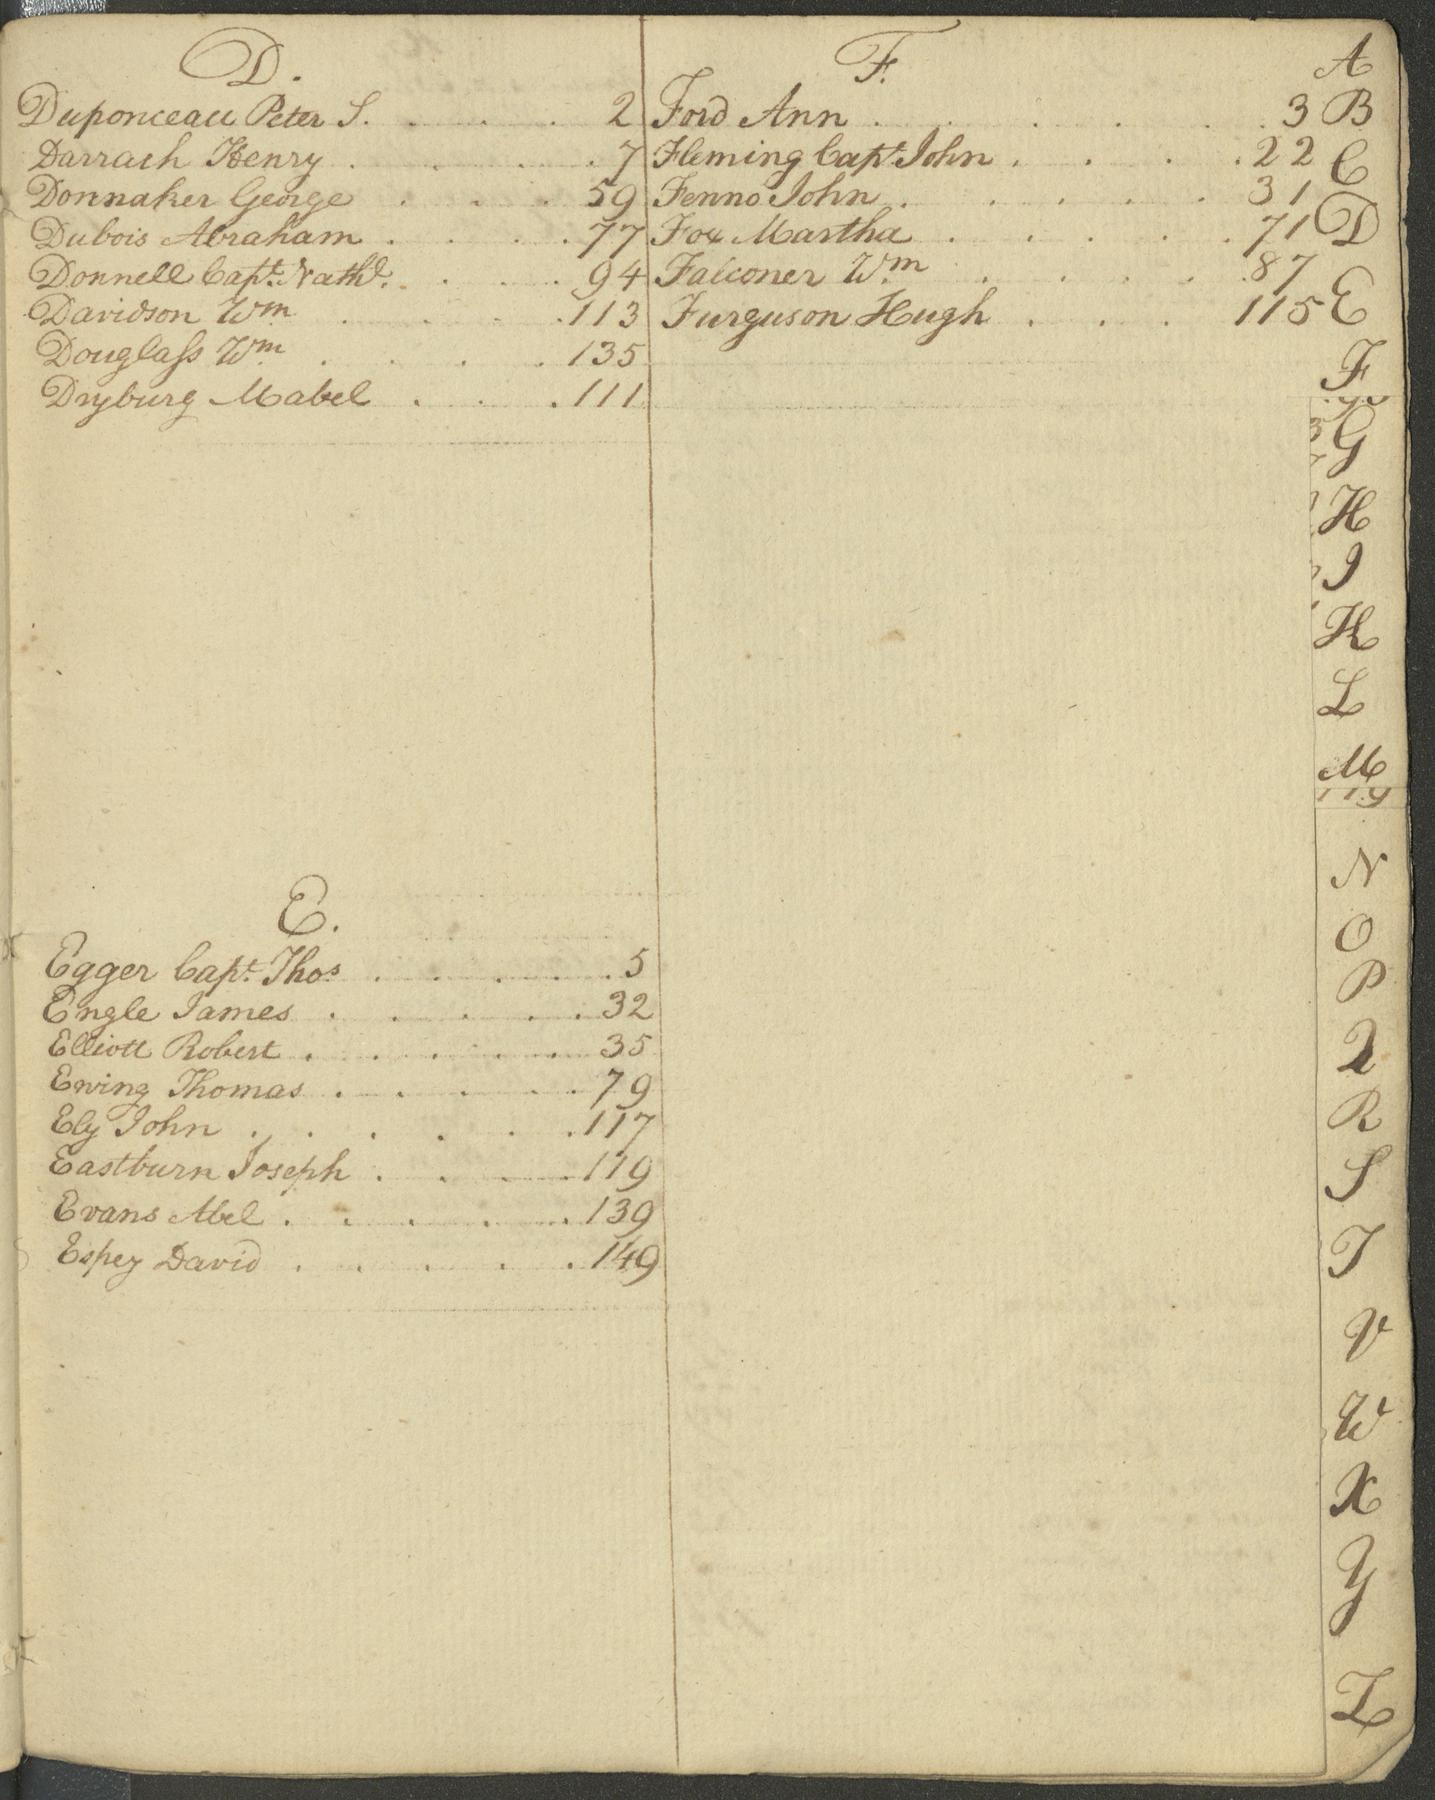 D.
Duponceau Peter S. . . . 2
Darrach Henry . . . . 7
Donnaker George . . . 59
Dubois Abraham . . . . 77
Donnell Capt. Nathl. . . . 94
Davidson Wm . . . 113
Douglass Wm . . . . 135
Dryburg Mabel . . . 111
E.
Egger Capt. Thos . . . . . 5
Engle James . . . . . 32
Elliott Robert . . . . . 35
Ewing Thomas . . . . . 79
Ely John . . . . . . 117
Eastburn Joseph . . . . 119
Evans Abel . . . . . . 139
Espey David . . . . . 149
F.
Ford Ann . . . . . . 3
Fleming Capt. John . . . . 22
Fenno John . . . . . 31
Fox Martha . . . . . 71
Falconer Wm . . . . . 87
Furguson Hugh . . . 115
A
B
C
D
E
F
G
H
I
K
L
M
119
N
O
P
Q
R
S
T
V
W
X
Y
Z